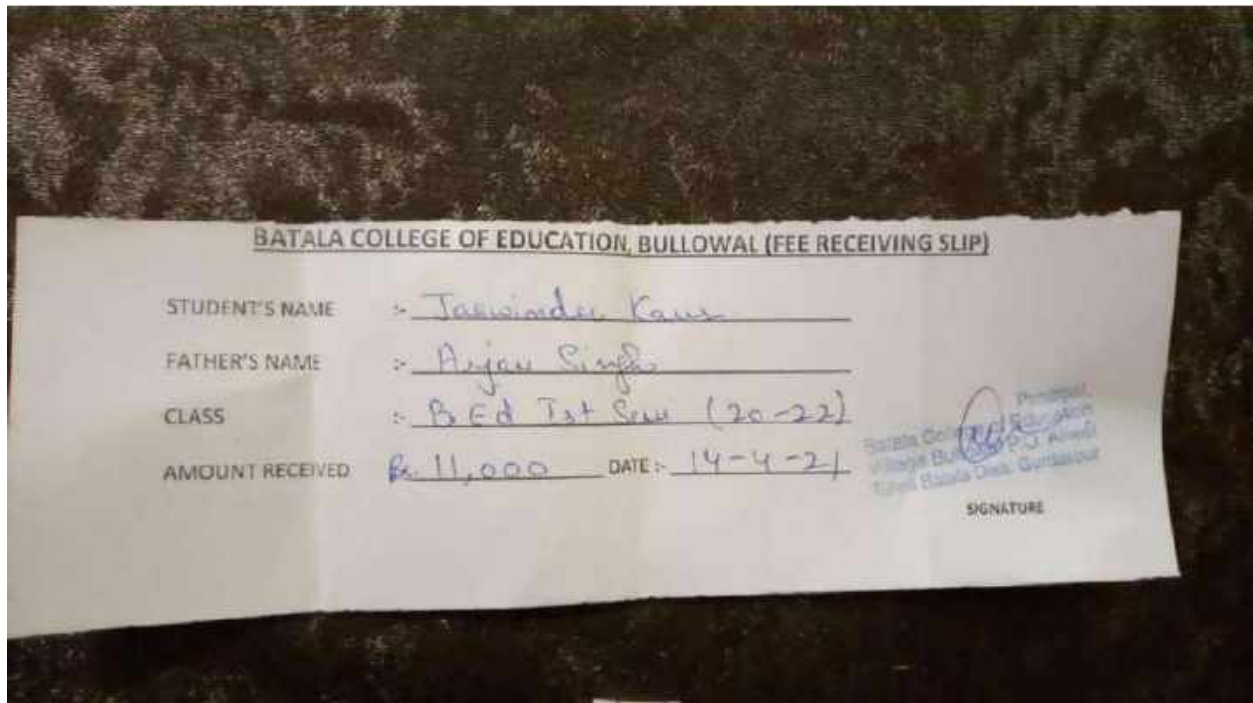 BATALA COLLEGE OF EDUCATION, BULLOWAL (FEE RECEIVING SLIP)
STUDENT'S NAME :- Jaswinder Kaur
FATHER'S NAME :- Arjan Singh
CLASS :- B.Ed Ist Sem (20-22)
AMOUNT RECEIVED Rs. 11,000 DATE :- 14-4-21
Principal,
Batala College of Education
Village Bullowal P.O. Aliwal
Tehsil Batala Distt. Gurdaspur
SIGNATURE